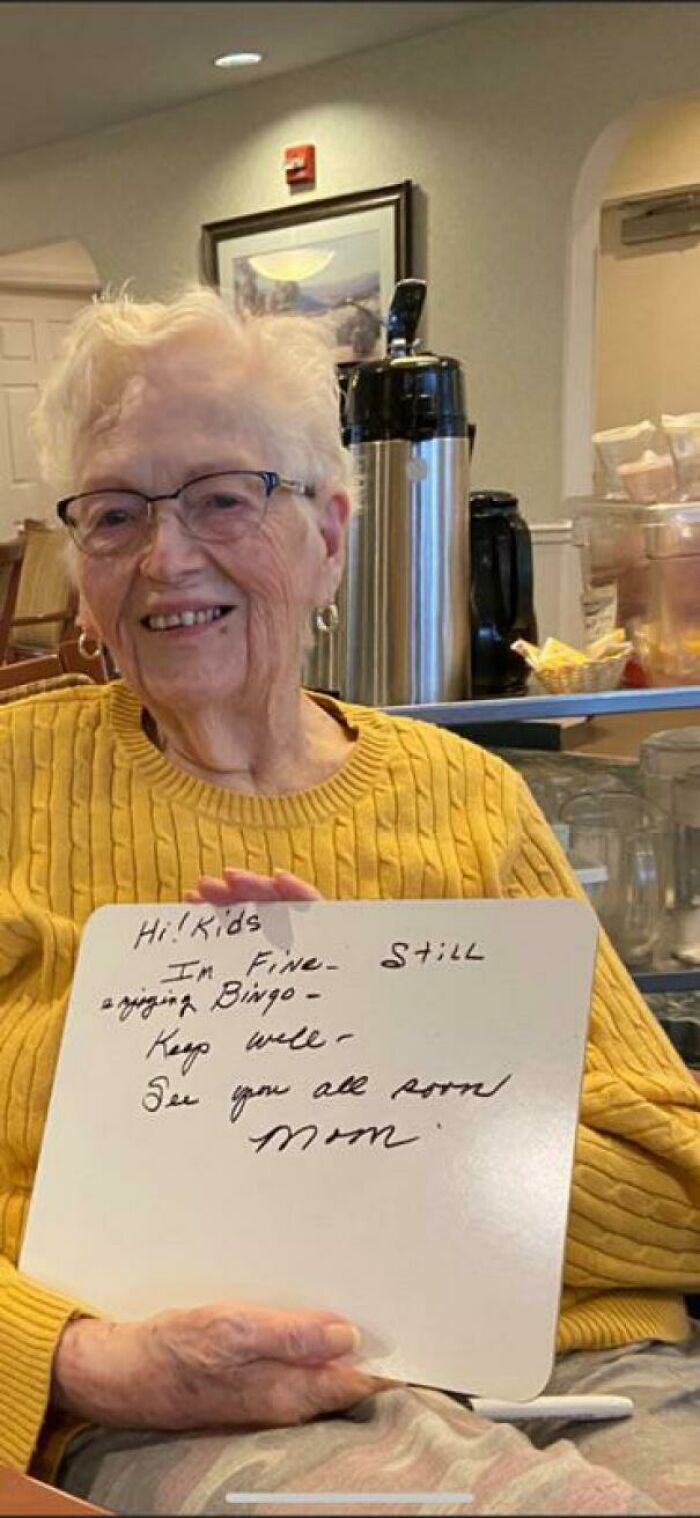 Hi! Kids
Im Fine- Still
enjoying Bingo-
Keep well-
See you all soon
Mom